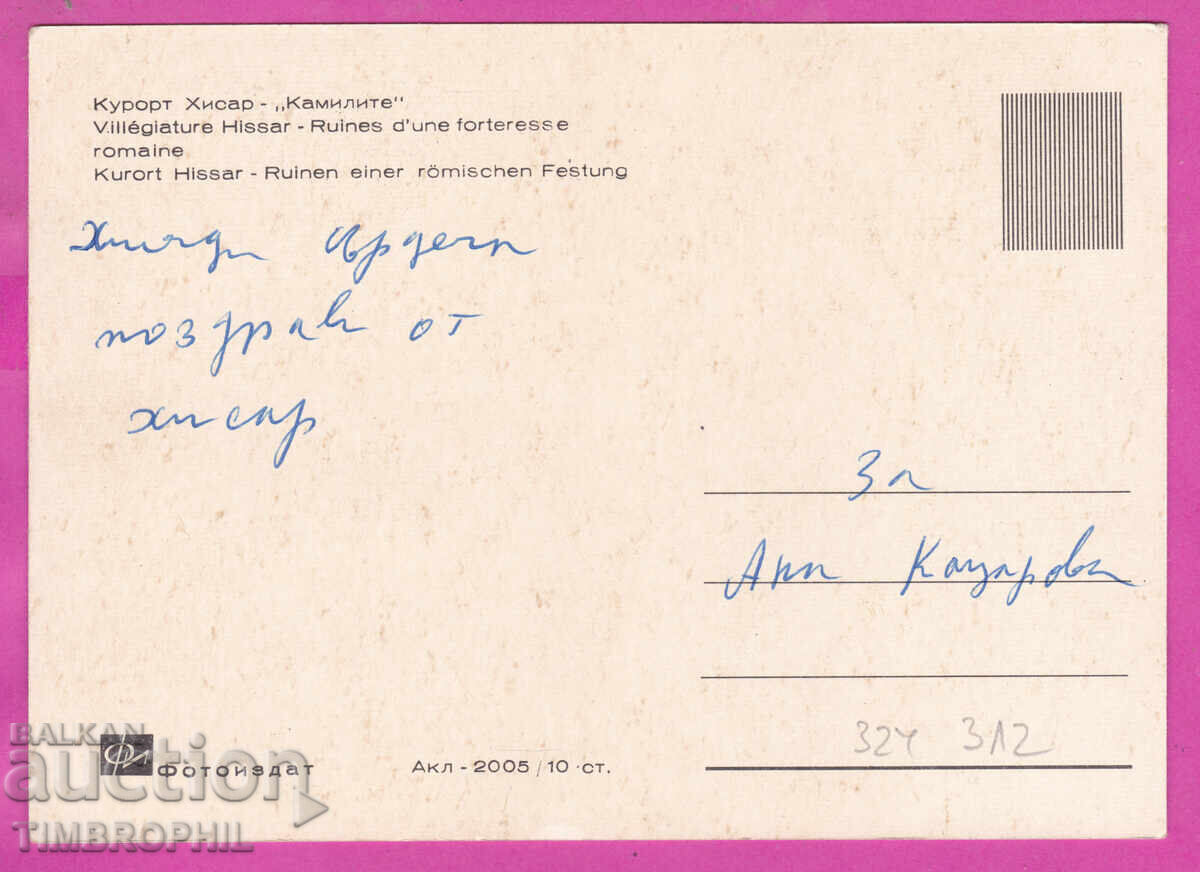 Курорт Хисар - „Камилите"
Villégiature Hissar - Ruines d'une forteresse
romaine
Kurort Hissar - Ruinen einer römischen Festung
Хиляди сърдечни
поздрави от
хисар
За
Ани Кацарова
324 3Л2
BALKAN
auction
TIMBROPHIL
ФИ Фотоиздат
Акл - 2005 / 10 ст.